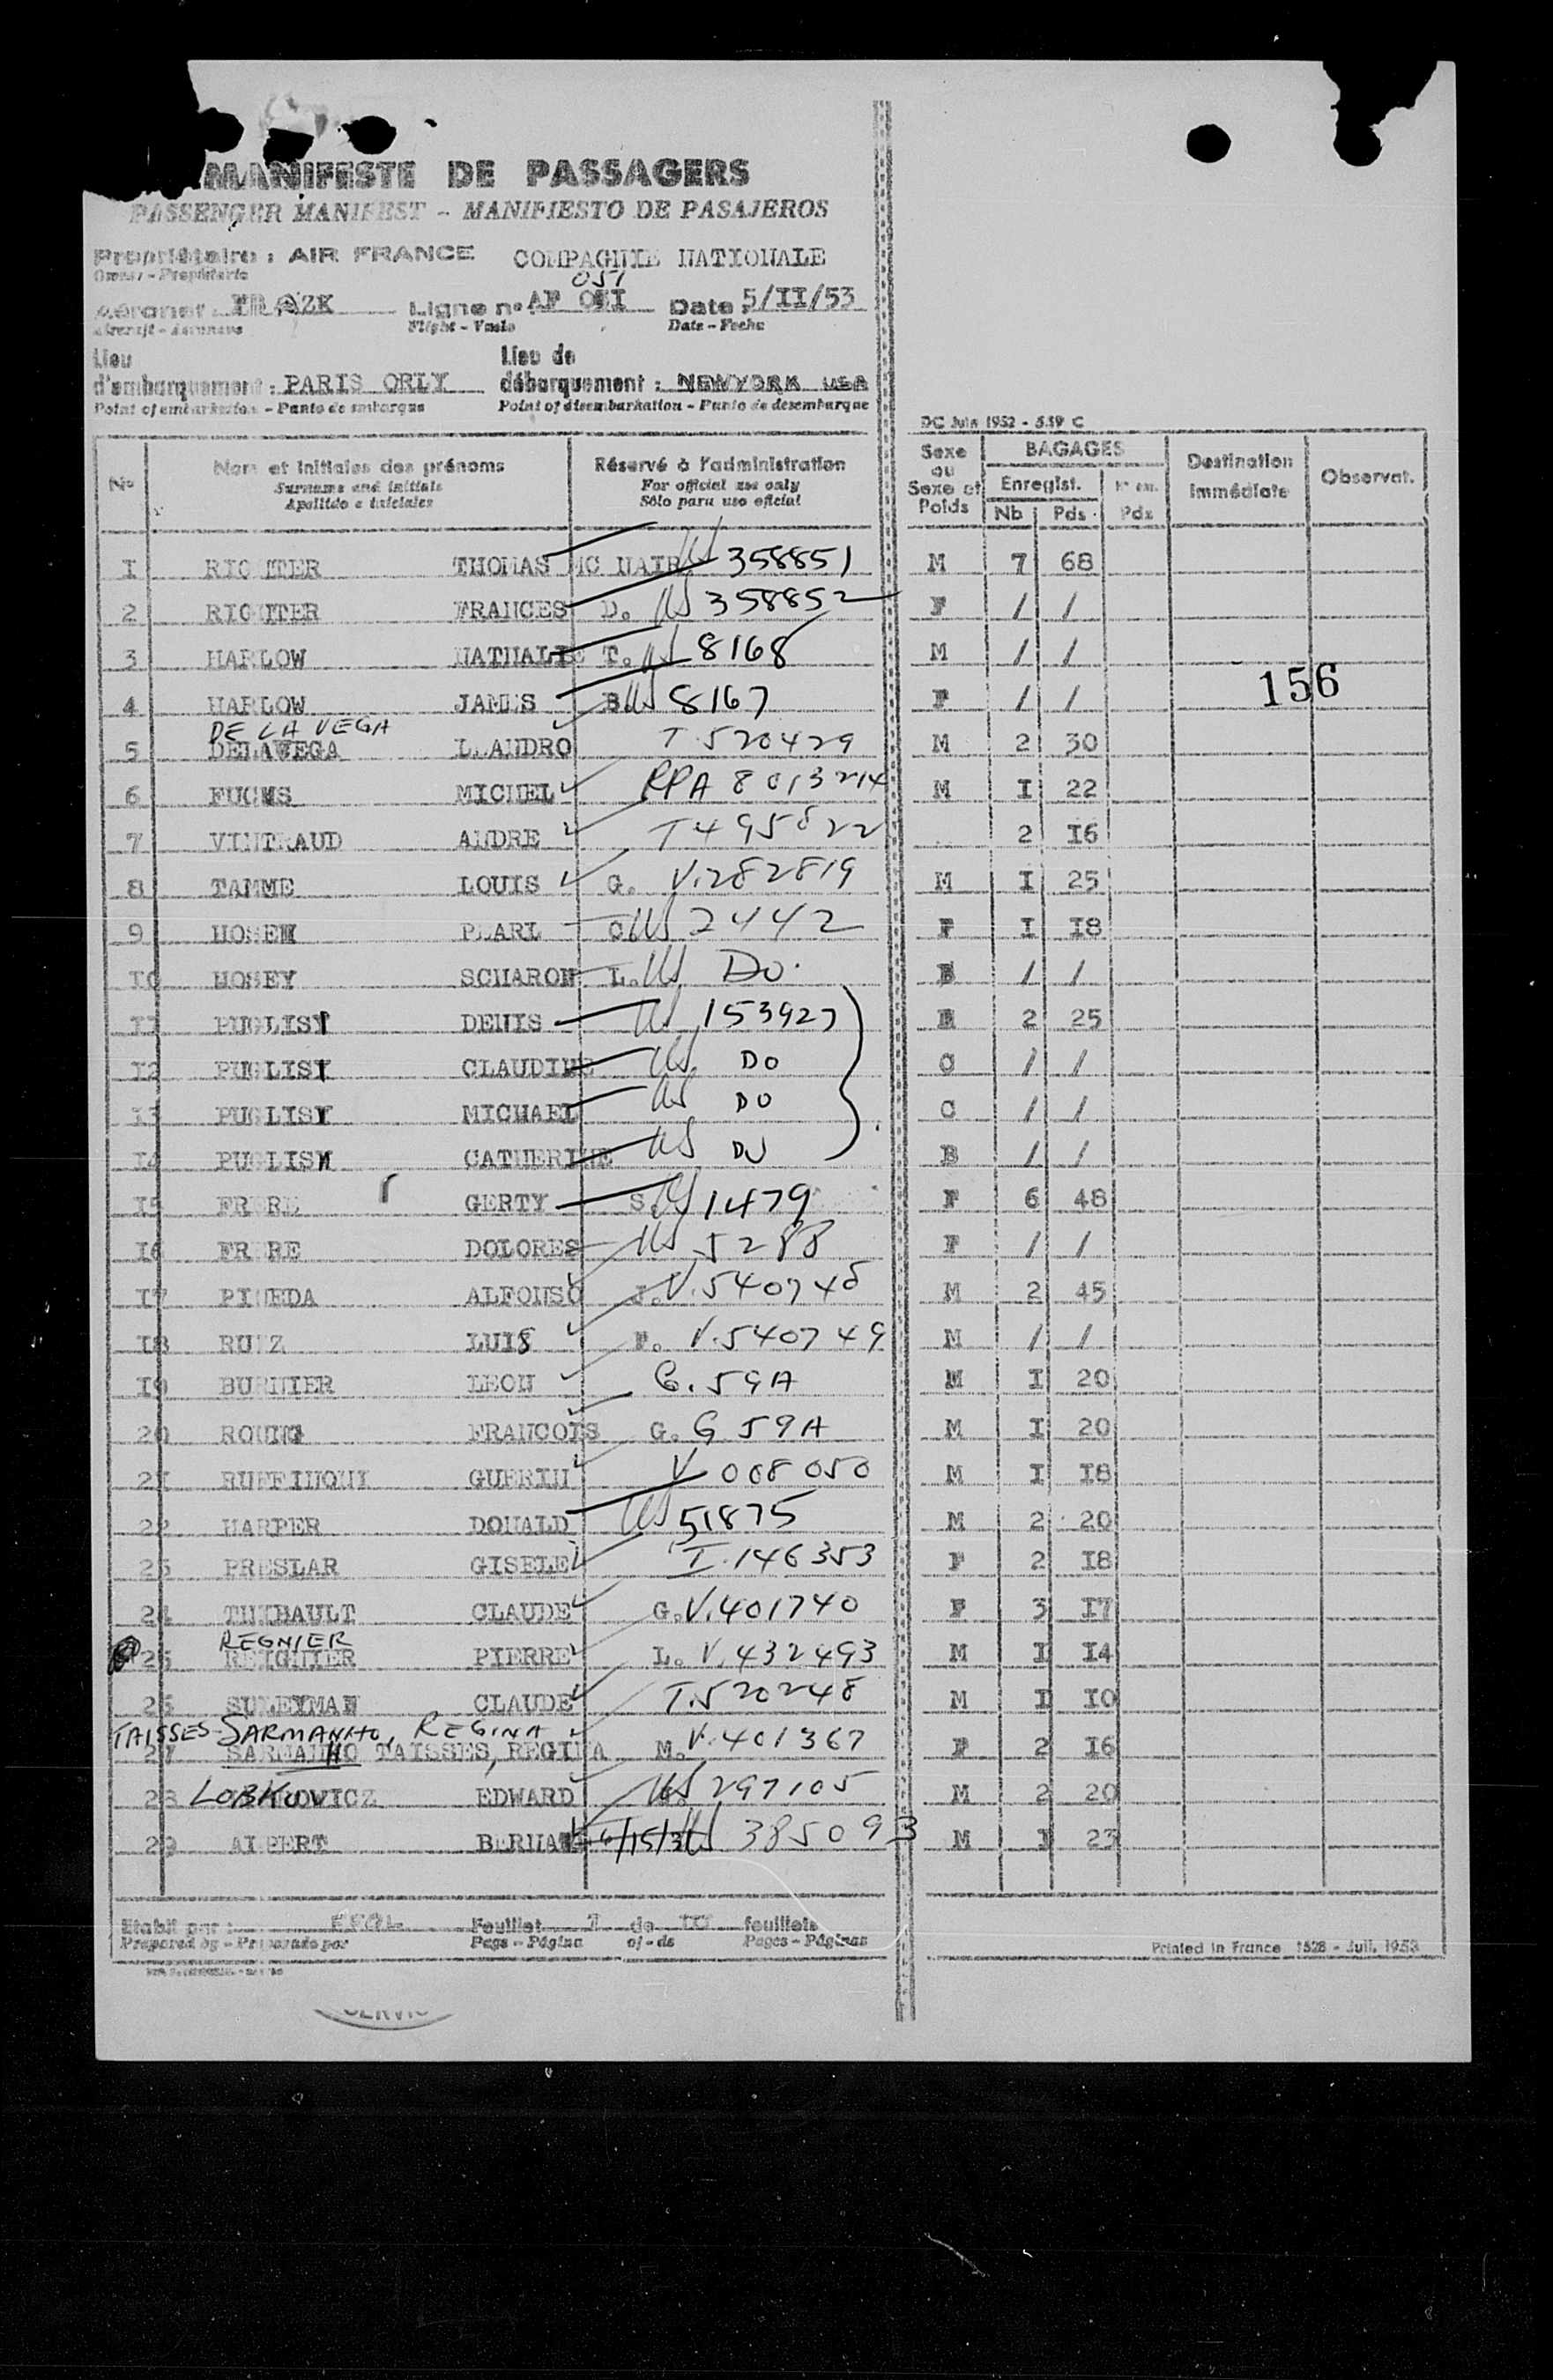 MANIFESTE DE PASSAGERS
PASSENGER MANIFEST - MANIFIESTO DE PASAJEROS
Propriétaire : AIR FRANCE COMPAGNIE NATIONALE
Owner - Propietario
051
Aéronef : AZK Ligne n° AF 051 Date 5/II/53
Aircraft - Aeronave Flight - Vuelo Date - Fecha
Lieu d'embarquement : PARIS ORLY
Point of embarkation - Punto de embarque
Lieu de débarquement : NEWYORK USA
Point of disembarkation - Punto de desembarque
DC Juin 1952 - 539 C
No Nom et initiales des prénoms Réservé à l'administration Sexe ou Sexe et Poids BAGAGES Destination immédiate Observat.
Surname and initials For official use only Enregist.
Apellido e iniciales Sólo para uso oficial Nb Pds Pds
1 RICHTER THOMAS MC NAIR US 358851 M 7 68
2 RICHTER FRANCES D. US 358852 F / /
3 HARLOW NATHALIE T. US 8168 M / /
4 HARLOW JAMES B US 8167 F / /
156
DE LA VEGA
5 DELAVEGA LEANDRO T.520429 M 2 30
6 FUCHS MICHEL PPA 8013214 M I 22
7 VINTRAUD ANDRE T495822 2 I6
8 TAMME LOUIS G. V.282819 M I 25
9 PEARL C US 2442 F I I8
10 SCHARON L. US Do. B / /
11 PUGLISI DENIS US 153927 2 25
12 PUGLISI CLAUDINE US DO C / /
13 PUGLISI MICHAEL US DO C / /
14 PUGLISI CATHERINE US DO B / /
15 FRERE GERTY S. US 1479 F 6 48
16 FRERE DOLORES US 5288 F / /
17 PINEDA ALFONSO J. V.540748 M 2 45
18 RUIZ LUIS F. V.540749 M / /
19 BURNIER LEON G.59A M I 20
20 FRANCOIS G. G 59A M I 20
21 RUFFINONI GUERIN V 008050 M I I8
22 HARPER DONALD US 51875 M 2 20
23 PRESLAR GISELE I.146353 F 2 I8
24 THIBAULT CLAUDE G. V.401740 F 3 I7
REGNIER
25 REIGNIER PIERRE L. V.432493 M I I4
26 SULEYMAN CLAUDE T.520248 M I I0
TAISSES-SARMANHO, REGINA
27 SARMANHO TAISSES, REGINA M. V.401367 F 2 I6
28 LOBKOWICZ EDWARD US 297105 M 2 20
29 ALPERT 6/15/3 US 385093 M I 23
Etabli par : Feuillet I de feuillets
Prepared by - Preparado por Page - Página of - de Pages - Páginas
Printed in France 1528 - Juil. 1953
SERVIC